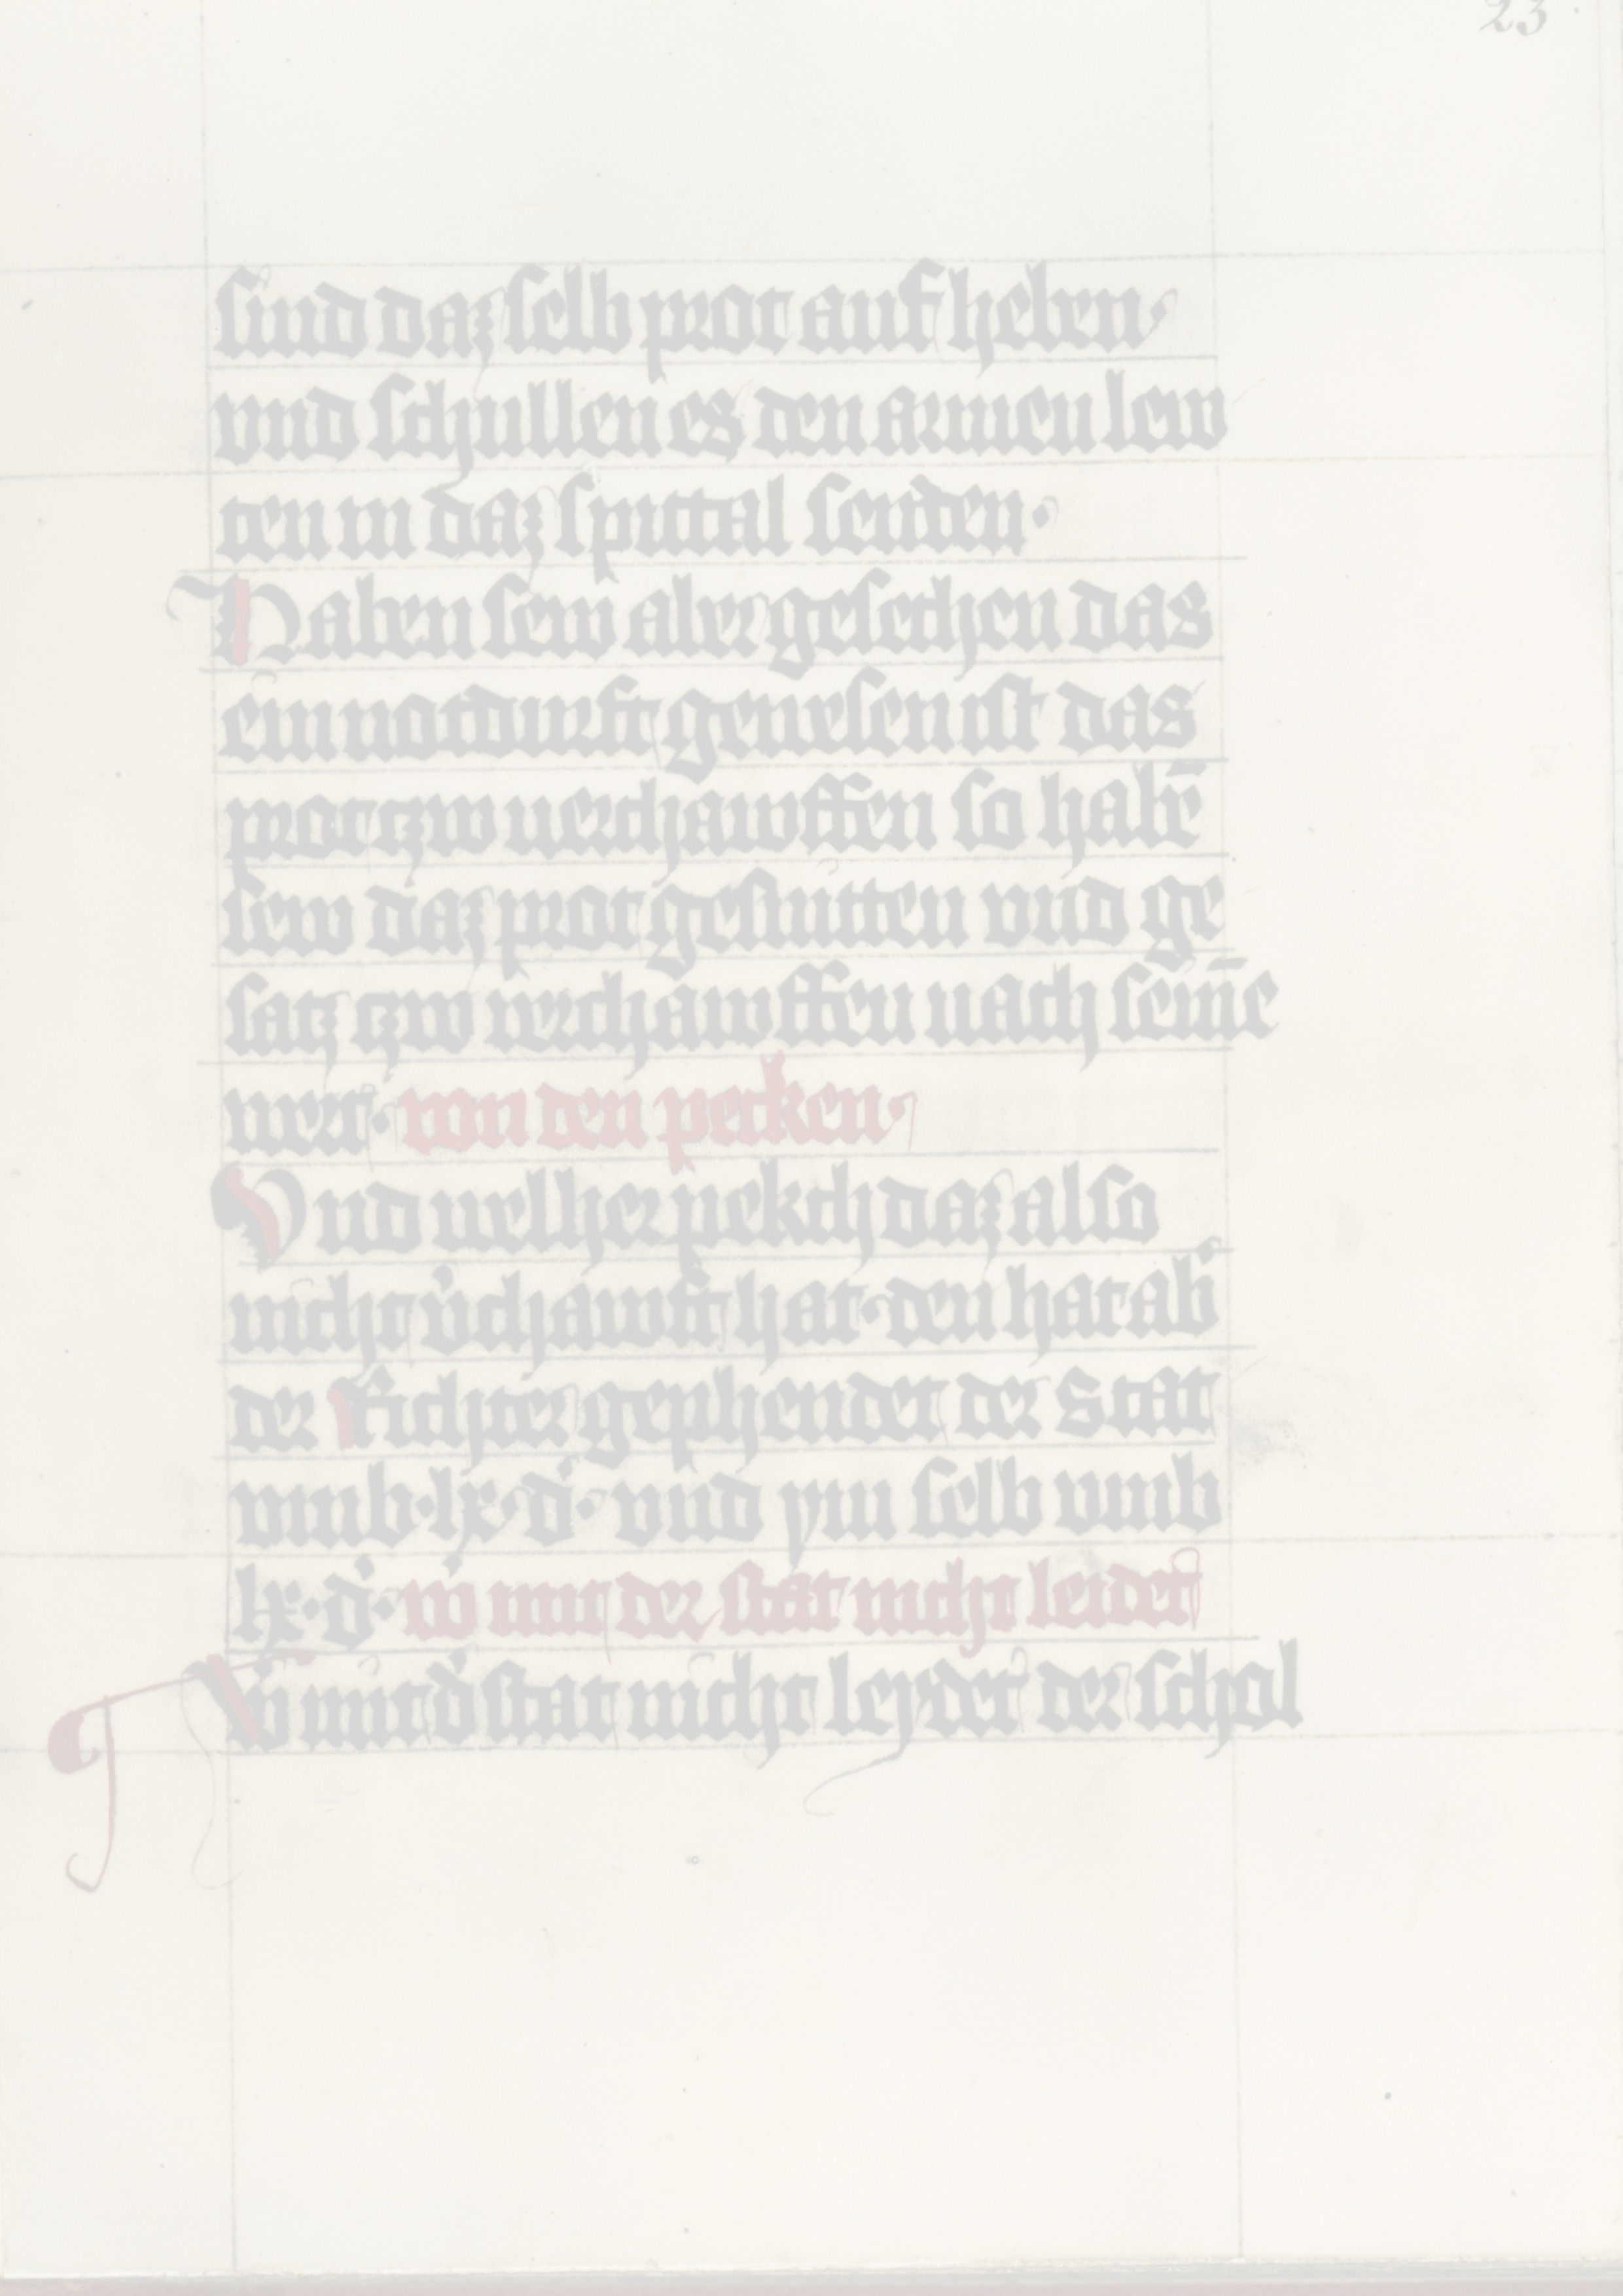 23.
sind daz selb prot auf heben·
vnd schullen es den armen lew
ten in daz spittal senden·
Haben sew aber gesechen das
ein notdurft gewesen ist das
prot tzw uerchawffen so habē
sew daz prot gesnitten vnd ge
satz tzw verchawffen nach seim̄e
wert· von den pecken·
Vnd welher pekch daz also
nicht v̓chawft hat· den hat ab̓
der Richter gephendet der Stat
vmb·lx·d̓· vnd ym selb vmb
lx·d̓· w̓ mit der stat nicht leidet
W̓ mit d̓ stat nicht leydet der schol